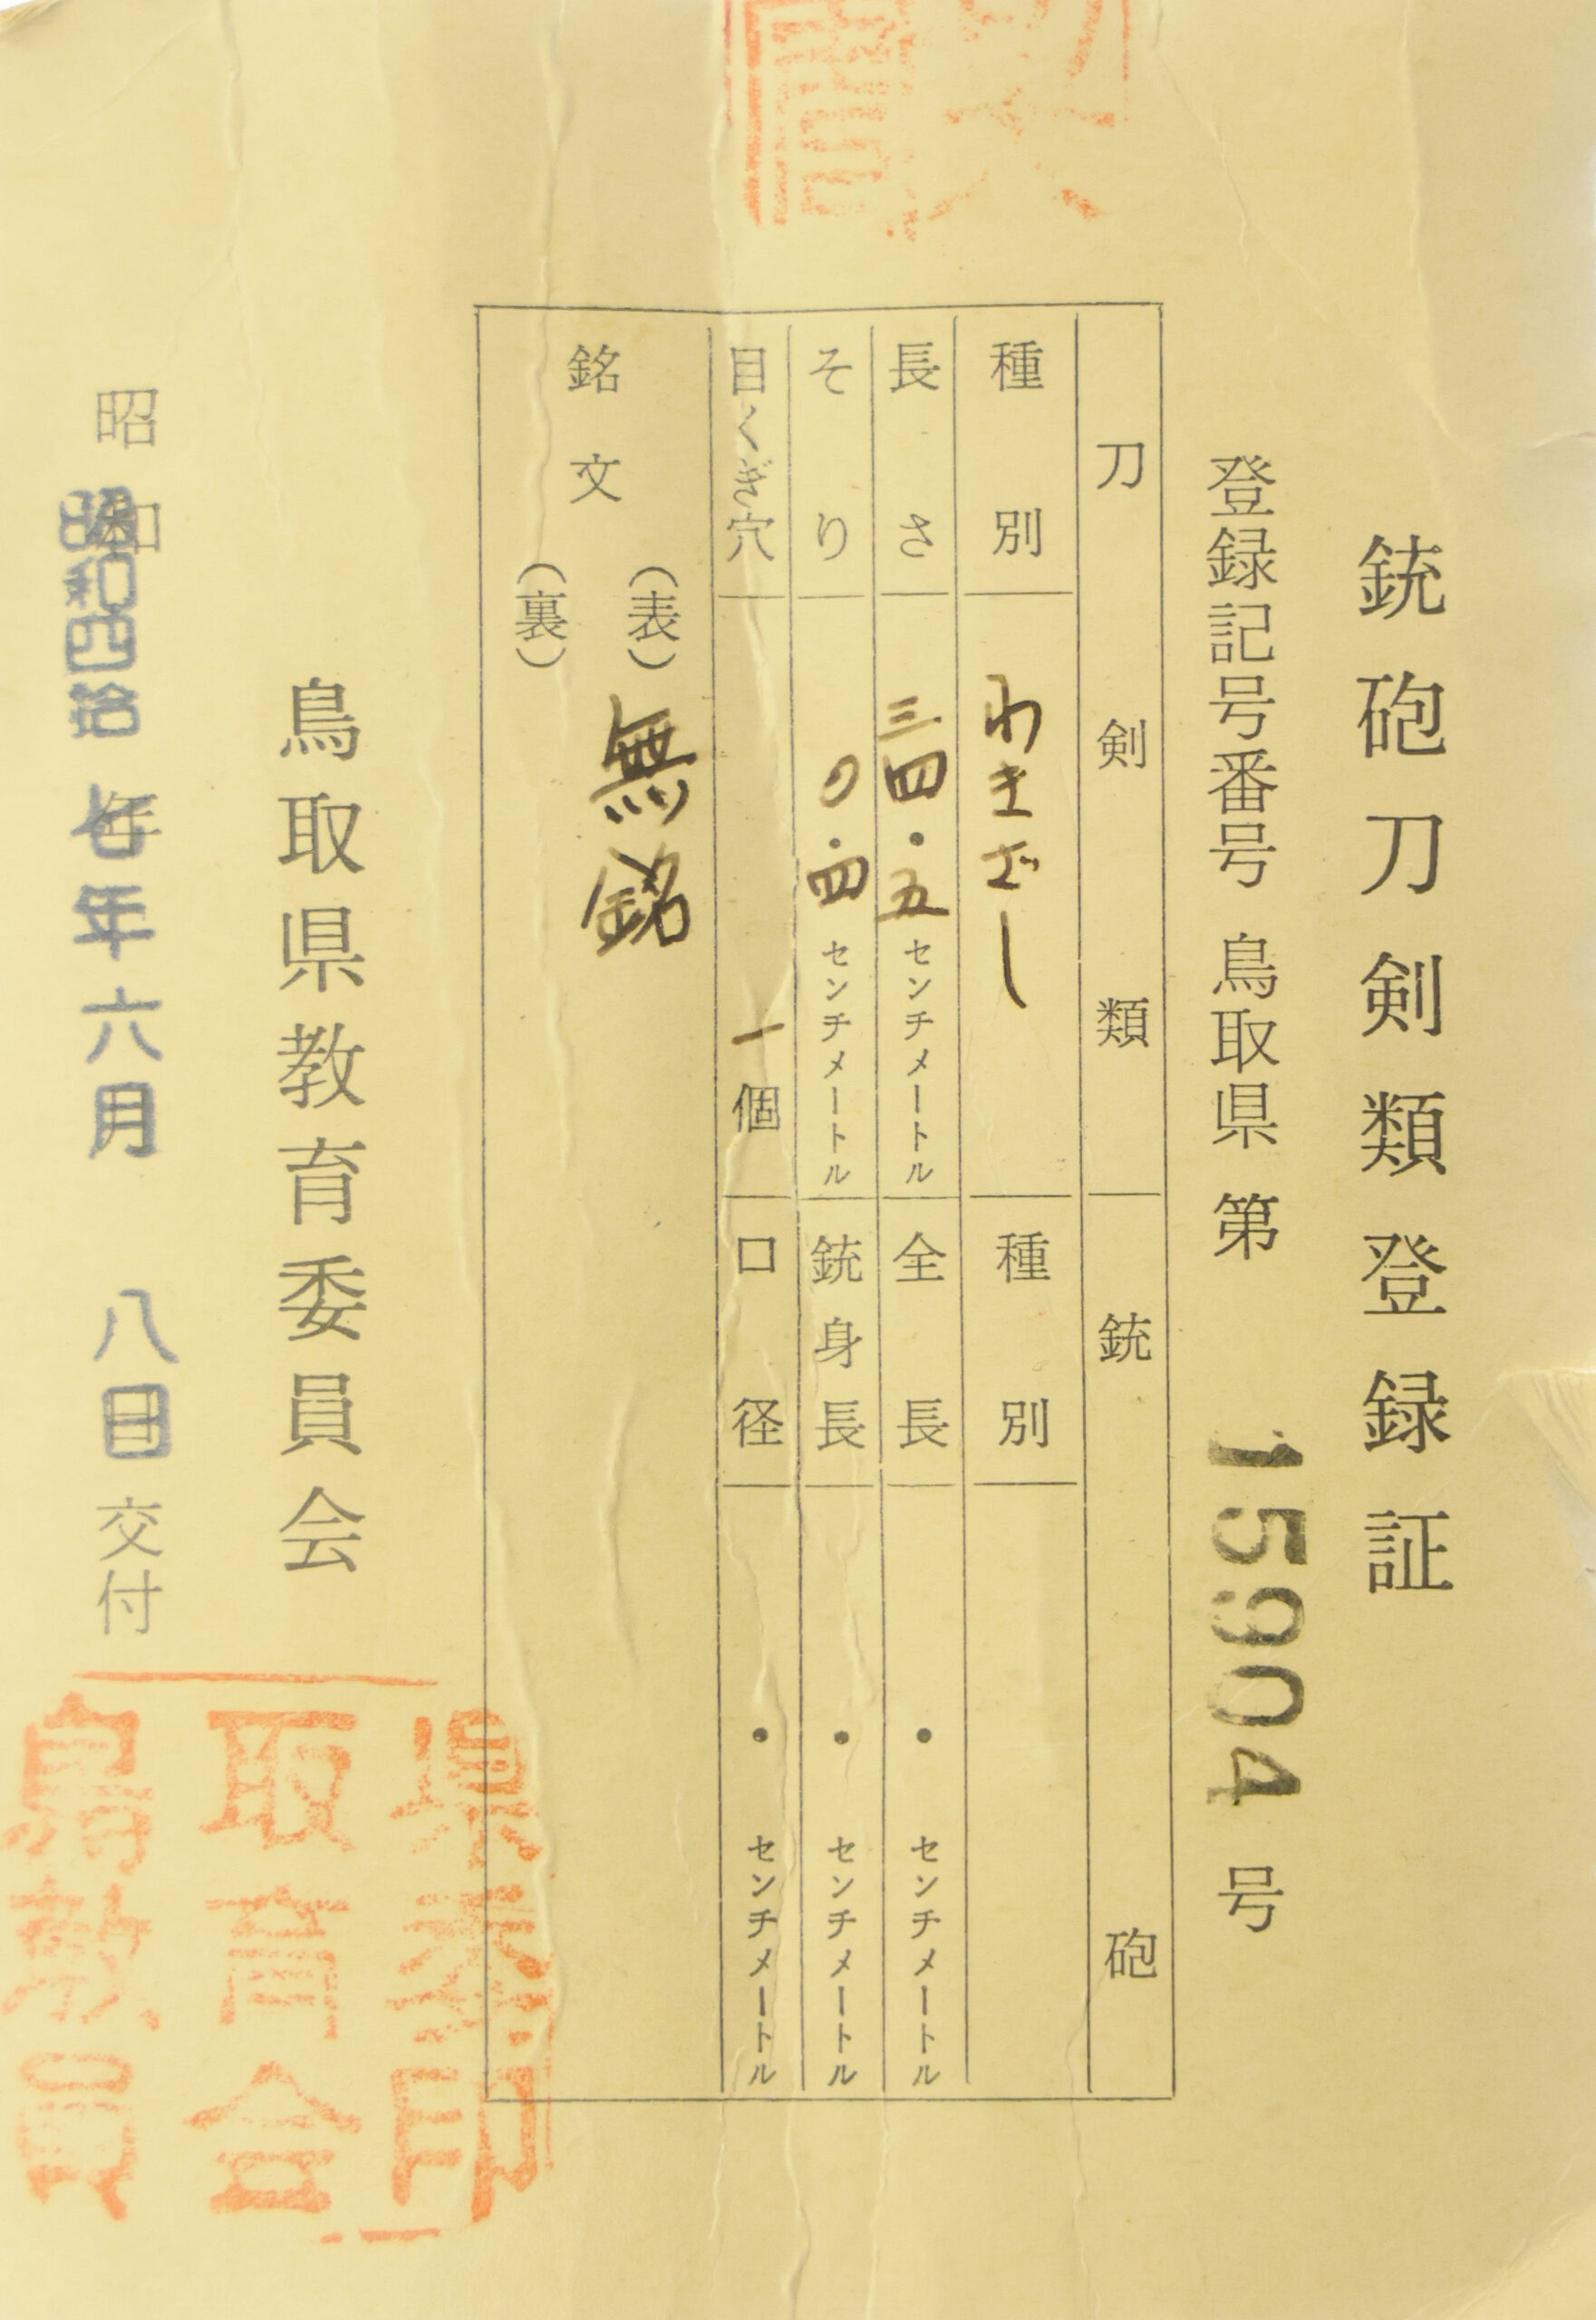 銃砲刀剣類登録証
登録記号番号 鳥取県 第 15904 号
刀剣類 銃砲
種別 わきざし 種別
長さ 三四・五 センチメートル 全長 ・ センチメートル
そり 〇・四 センチメートル 銃身長 ・ センチメートル
目くぎ穴 一個 口径 ・ センチメートル
銘文 (表) 無銘
(裏)
鳥取県教育委員会
昭和 昭和四拾七年六月 八日 交付
県委印
取育会
鳥教員